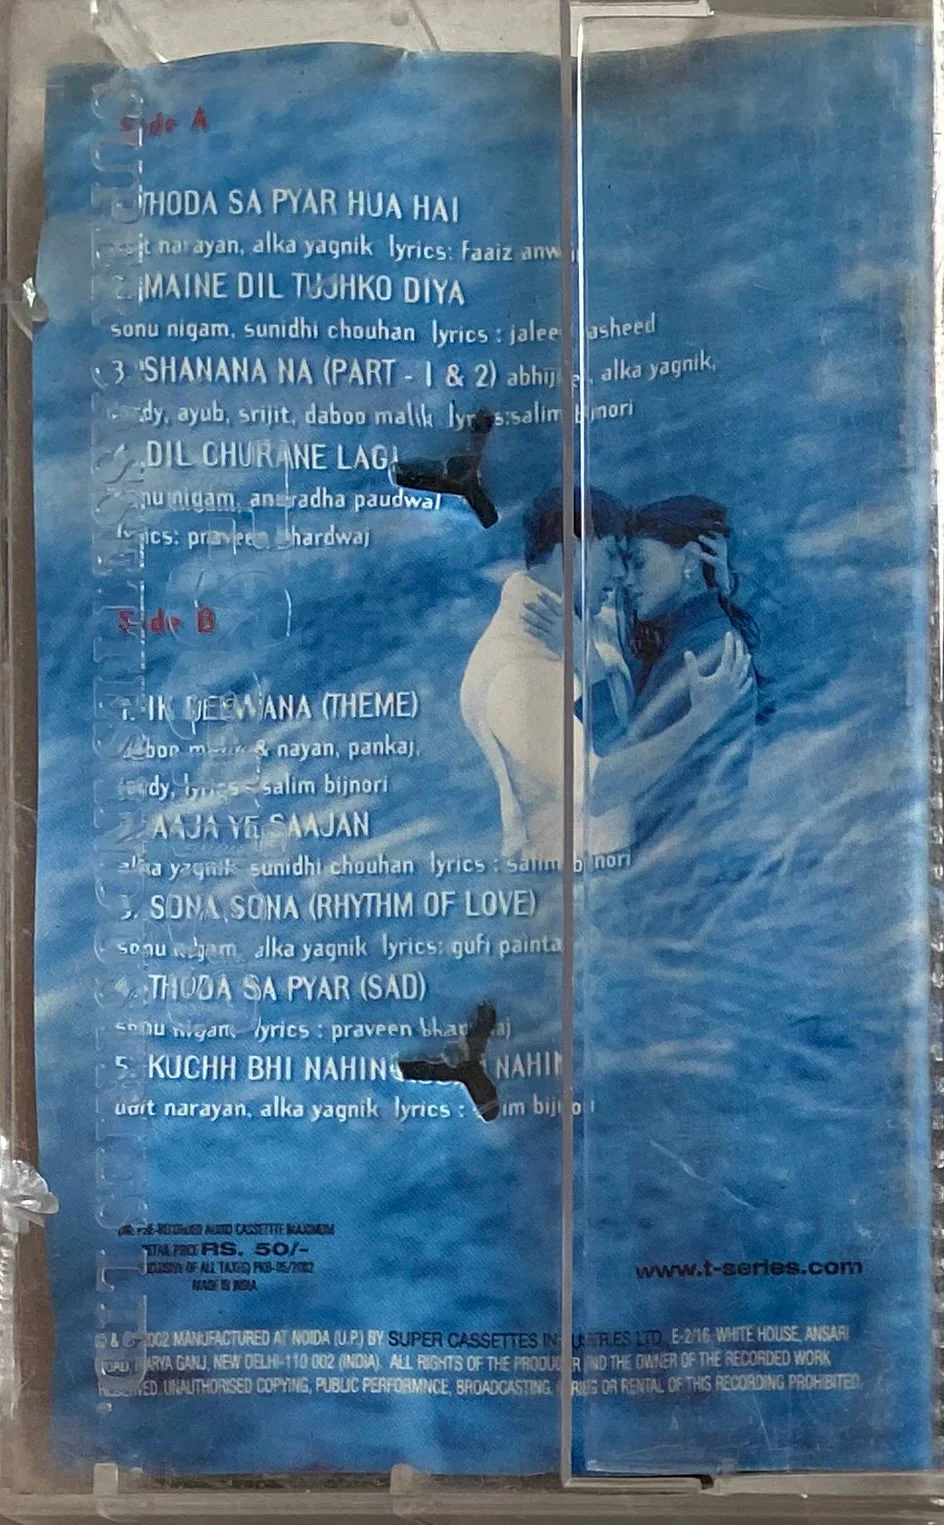 Side A
THODA SA PYAR HUA HAI
narayan, alka yagnik lyrics: faaiz
2. MAINE DIL TUJHKO DIYA
sonu nigam, sunidhi chouhan lyrics :
3. SHANANA NA (PART - 1 & 2) alka yagnik,
ayub, srijit, daboo malik salim
4. DIL CHURANE LAGI
nigam, anuradha paudwal
lyrics: praveen
Side B
1. IK DEEWANA (THEME)
& nayan, pankaj,
salim bijnori
2. AAJA YE SAAJAN
yagnik sunidhi chouhan lyrics : salim
3. SONA SONA (RHYTHM OF LOVE)
sonu nigam, alka yagnik lyrics: gufi painta
4. THODA SA PYAR (SAD)
sonu nigam lyrics : praveen
5. KUCHH BHI NAHIN NAHIN
udit narayan, alka yagnik lyrics :
PRE-RECORDED AUDIO CASSETTE MAXIMUM
RETAIL PRICE RS. 50/-
OF ALL TAXES) PKD-05/2002
MADE IN INDIA
www.t-series.com
2002 MANUFACTURED AT NOIDA (U.P.) BY SUPER CASSETTES INDUSTRIES LTD. E-2/16, WHITE HOUSE, ANSARI
ROAD, DARYA GANJ, NEW DELHI-110 002 (INDIA). ALL RIGHTS OF THE PRODUCER AND THE OWNER OF THE RECORDED WORK
RESERVED. UNAUTHORISED COPYING, PUBLIC PERFORMNCE, BROADCASTING, OR RENTAL OF THIS RECORDING PROHIBITED.